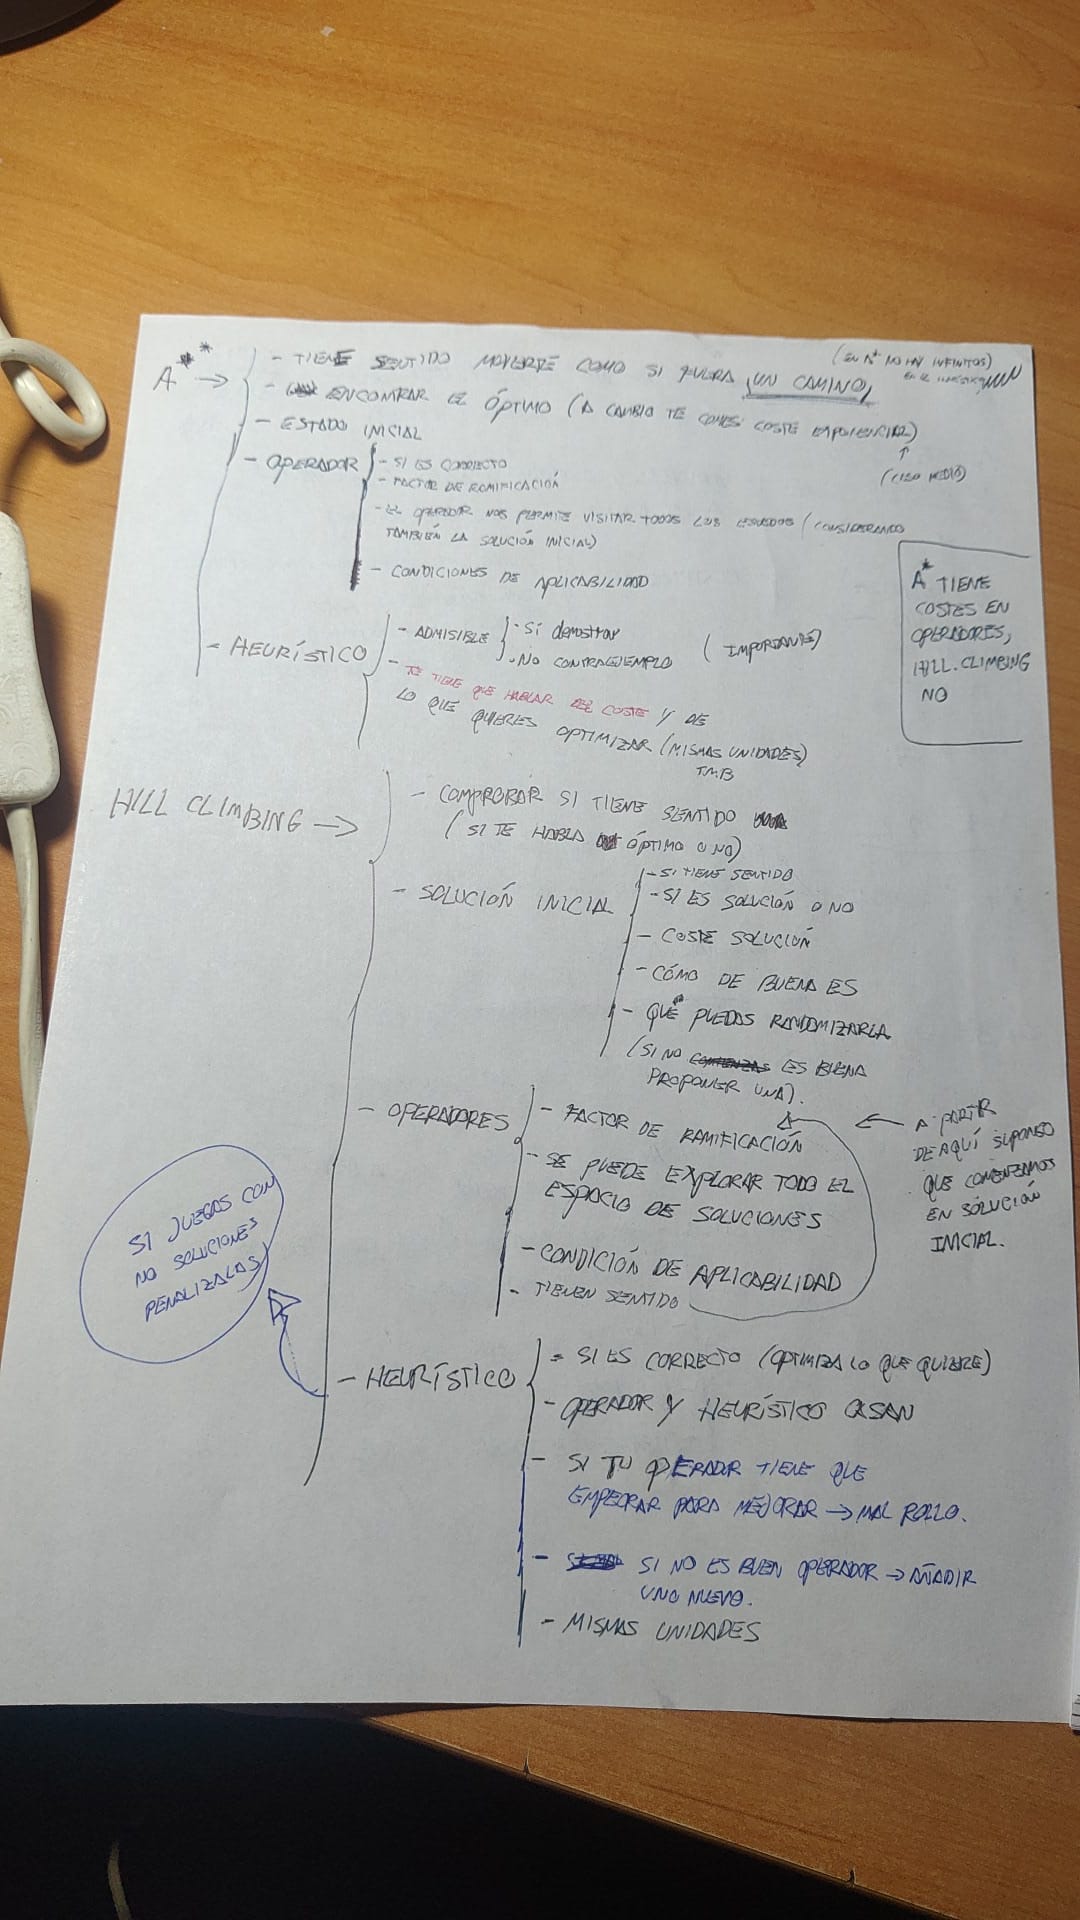 A* →
- TIENE SENTIDO MOVERTE COMO SI FUERA UN CAMINO,
(EN A* NO HAY INFINITOS)
- ENCONTRAR EL ÓPTIMO (A CAMBIO TE COMES COSTE EXPONENCIAL)
(CASO MEDIO)
- ESTADO INICIAL
- OPERADOR
- SI ES CORRECTO
- FACTOR DE RAMIFICACIÓN
- EL OPERADOR NOS PERMITE VISITAR TODOS LOS ESTADOS (CONSIDERANDO
TAMBIÉN LA SOLUCIÓN INICIAL)
- CONDICIONES DE APLICABILIDAD
A* TIENE
COSTES EN
OPERADORES,
HILL-CLIMBING
NO
- HEURÍSTICO
- ADMISIBLE
- Sí demostrar
- NO CONTRAEJEMPLO
(IMPORTANTE)
- TE TIENE QUE HABLAR DEL COSTE Y DE
LO QUE QUIERES OPTIMIZAR (MISMAS UNIDADES)
TMB
HILL CLIMBING →
- COMPROBAR SI TIENE SENTIDO
(SI TE HABLA ÓPTIMO O NO)
- SOLUCIÓN INICIAL
- SI TIENE SENTIDO
- SI ES SOLUCIÓN O NO
- COSTE SOLUCIÓN
- CÓMO DE BUENA ES
- QUE PUEDAS RANDOMIZARLA
(SI NO ES BUENA
PROPONER UNA).
- OPERADORES
- FACTOR DE RAMIFICACIÓN
- SE PUEDE EXPLORAR TODO EL
ESPACIO DE SOLUCIONES
- CONDICIÓN DE APLICABILIDAD
- TIENEN SENTIDO
← A PARTIR
DE AQUÍ SUPONGO
QUE COMENZAMOS
EN SOLUCIÓN
INICIAL.
SI JUEGAS CON
NO SOLUCIONES
PENALIZALAS
- HEURÍSTICO
- SI ES CORRECTO (OPTIMIZA LO QUE QUIERE)
- OPERADOR Y HEURÍSTICO CASAN
- SI TU OPERADOR TIENE QUE
EMPEORAR PARA MEJORAR → MAL ROLLO.
- SI NO ES BUEN OPERADOR → AÑADIR
UNO NUEVO.
- MISMAS UNIDADES